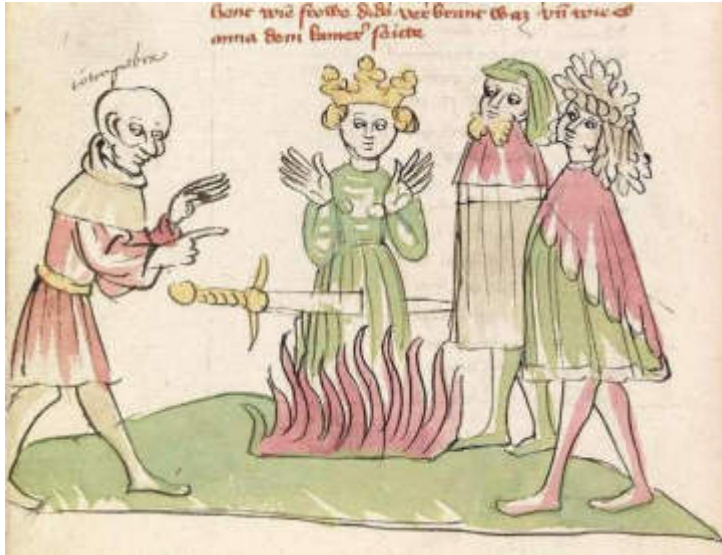 hent wie frowe dido verbrant waz vn̄ wie es
anna dem kamerˀ seite